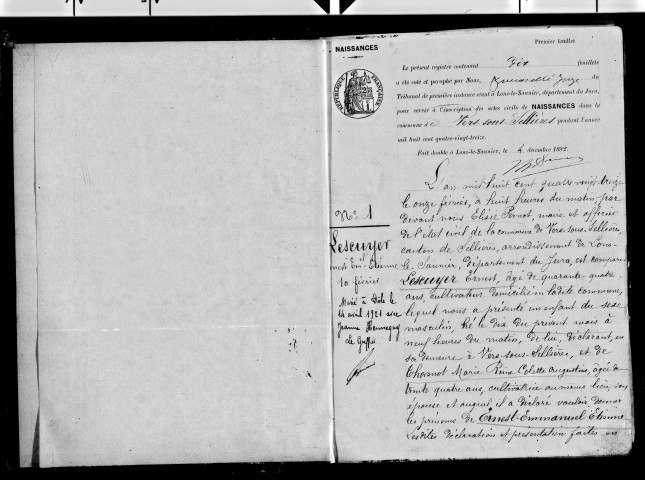 NAISSANCES
Premier feuillet
Le présent registre contenant Dix feuillets
a été coté et paraphé par Nous, juge du
Tribunal de première instance séant à Lons-le-Saunier, département du Jura,
pour servir à l'inscription des actes civils de NAISSANCES dans la
commune de Vers-sous-Sellières pendant l'année
mil huit cent quatre-vingt-treize.
Fait double à Lons-le-Saunier, le décembre 1892.
REPUBLIQUE FRANÇAISE
N° 1
Lescuyer
Ernest Em.el Etienne
10 février
Marié à Dole le
14 avril 1921 avec
Jeanne
L'an mil huit cent quatre vingt treize
le onze février, à huit heures du matin, par
devant nous Elisée Pernot, maire et officier
de l'état civil de la commune de Vers-sous-Sellières,
canton de Sellières, arrondissement de Lons-
le-Saunier, département du Jura, est comparu
Lescuyer Ernest, âgé de quarante-quatre
ans, cultivateur domicilié en ladite commune,
lequel nous a présenté un enfant du sexe
masculin, né le dix du présent mois à
neuf heures du matin, de lui, déclarant, en
sa demeure à Vers-sous-Sellières, et de
Marie Reine Colette Augustine, âgée de
trente quatre ans, cultivatrice au même lieu, son
épouse et auquel il a déclaré vouloir donner
les prénoms de Ernest-Emmanuel Etienne
Lesdites déclaration et présentation faites en